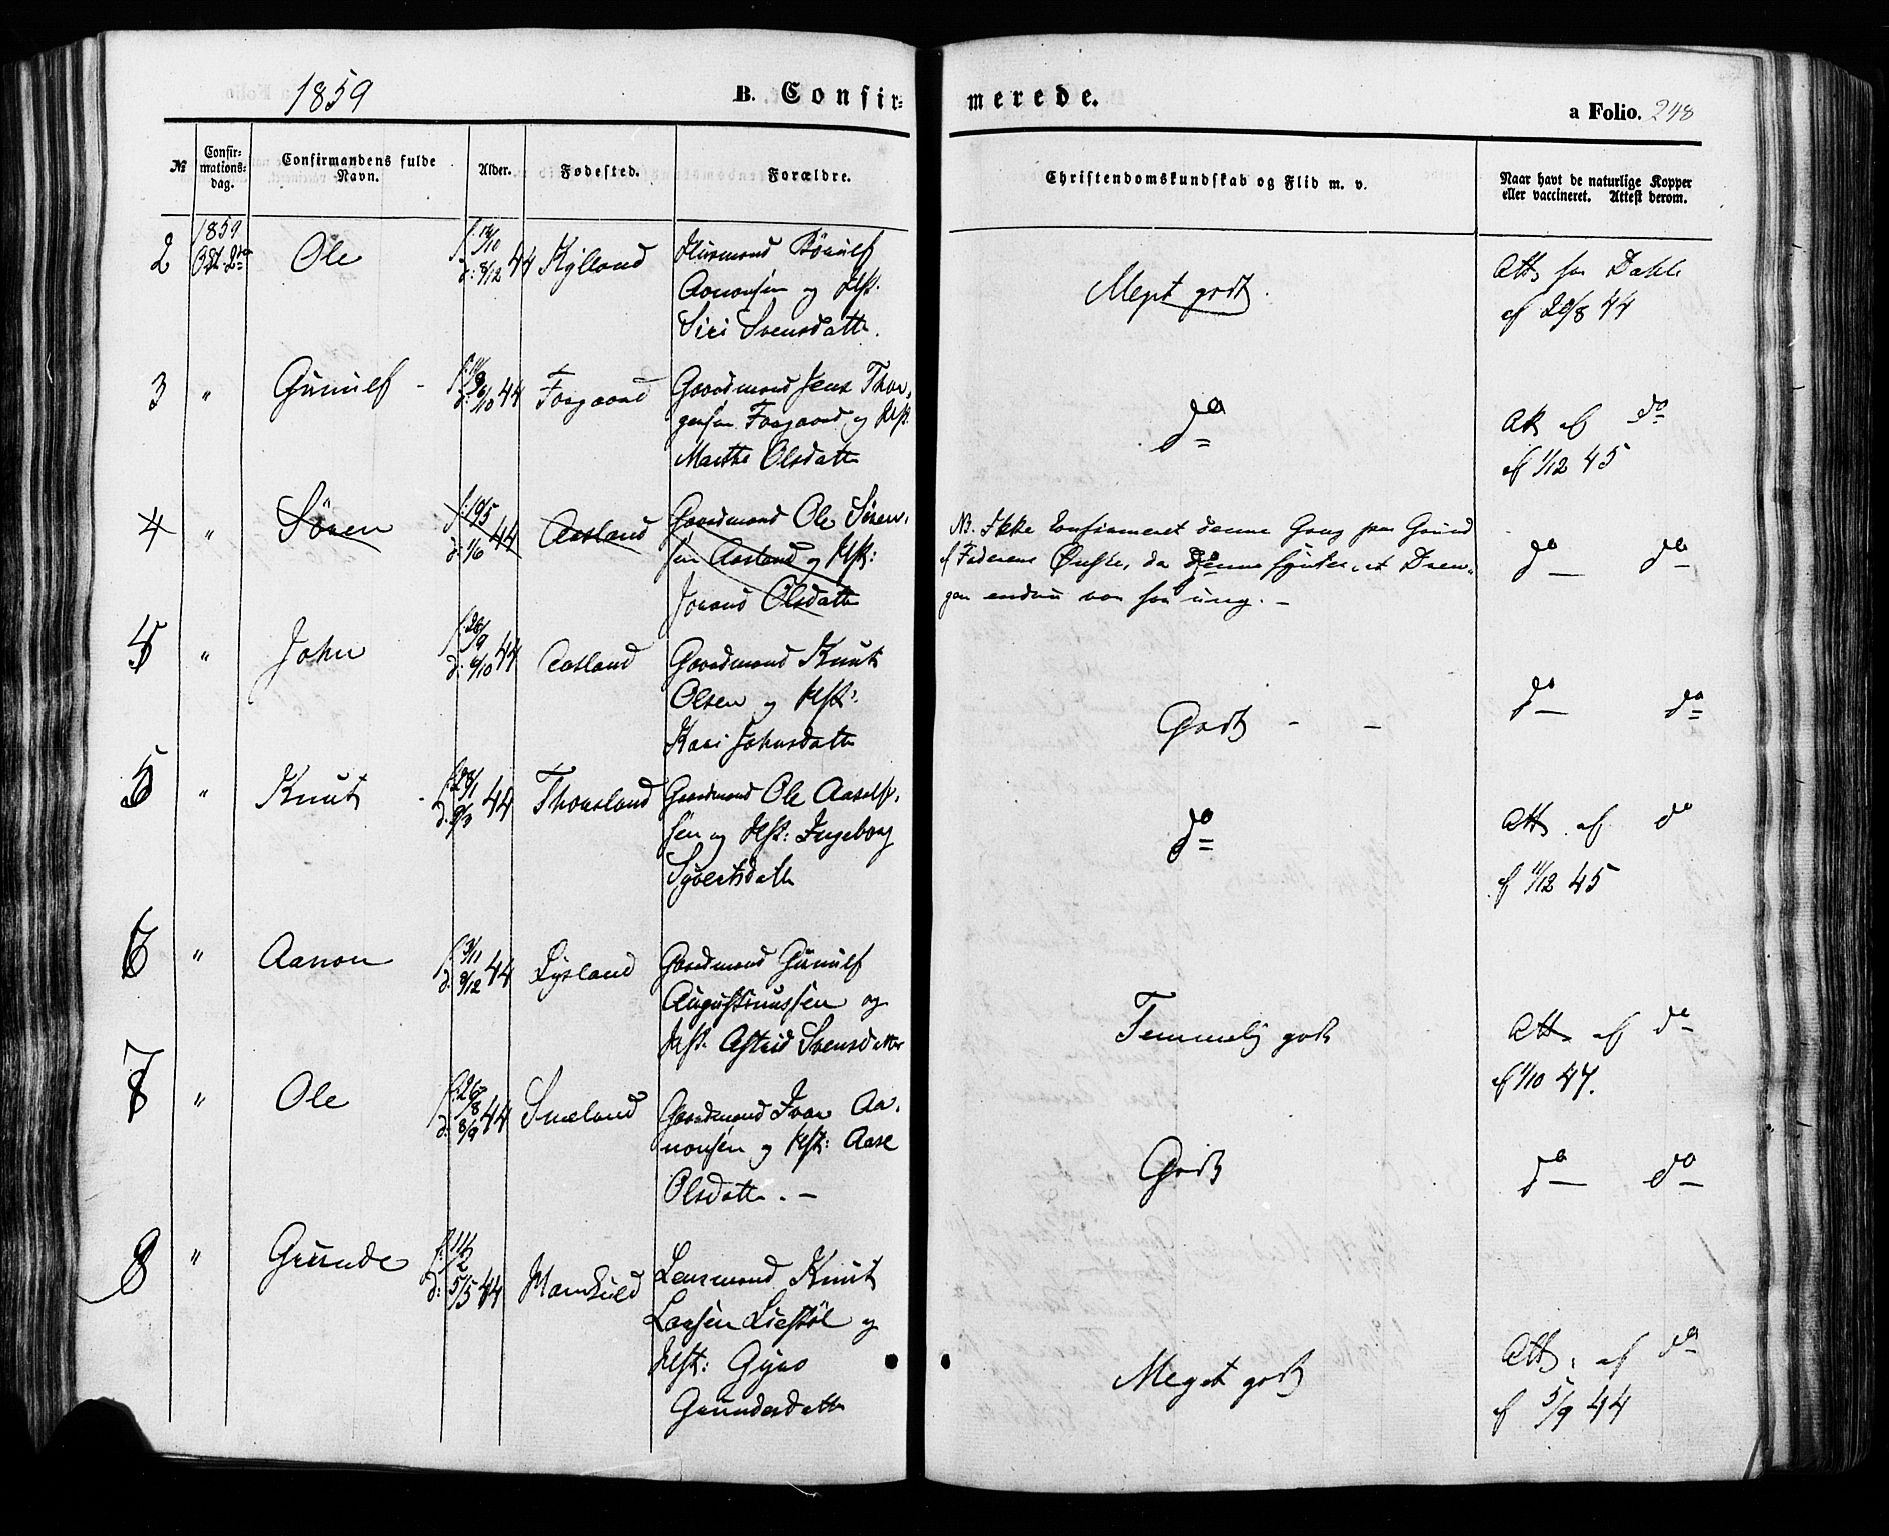 1859
B. Confirmerede.
a Folio. 248
№
Confirmationsdag.
Confirmandens fulde Navn.
Alder.
Fødested.
Forældre.
Christendomskundskab og Flid m. v.
Naar havt de naturlige Kopper eller vaccineret. Attest derom.
2 1859 Oct. 2den Ole d: 8/12 44 Kylland Huusmand
Aanonsen og Hst:
Siri Svensdattr.
Meget godt.
Att. fra Dahle
af 20/8 44
3 " Gunulf 44 Faagaard Gaardmand Jens Thor-
gersen Faagaard og Hst.
Marthe Olsdattr
do
Att af do
af 1/12 45
4 " Sören f: 19/5 d: 1/6 44 Aasland Gaardmand Ole Sören-
sen Aasland og Hst:
Joraand Olsdattr
NB. Ikke konfirmeret denne Gang paa Grund
af Faderens Ønske, da denne syntes, at Dren-
gen endnu var for ung. -
do do
5 " John f: 28/9 d: 6/10 44 Aasland Gaardmand Knut
Olsen og Hst:
Kari Johnsdattr
Godt - -
do do
5 " Knut 44 Thorsland Gaardmand Ole Aasulf-
sen og Hst: Ingeborg
Syvertsdattr
do
Att af do
af 11/12 45
6 " Aanon f: 3/11 d: 8/12 44 Lysland Gaardmand Gunulf
Augustinussen og
Hst. Astrid Svensdatter
Temmelig godt
Att. af do
af 1/10 47.
7 " Ole f: 26/8 d: 8/9 44 Smeland Gaardmand Ivar Aa-
nonsen og Hst: Aase
Olsdattr. -
Godt
do do
8 " Gunde d: 5/5 44 Lensmand Knut
Larsen Liestöl og
Hst: Gyro
Gundersdattr
Meget godt
Att. af do
af 5/9 44